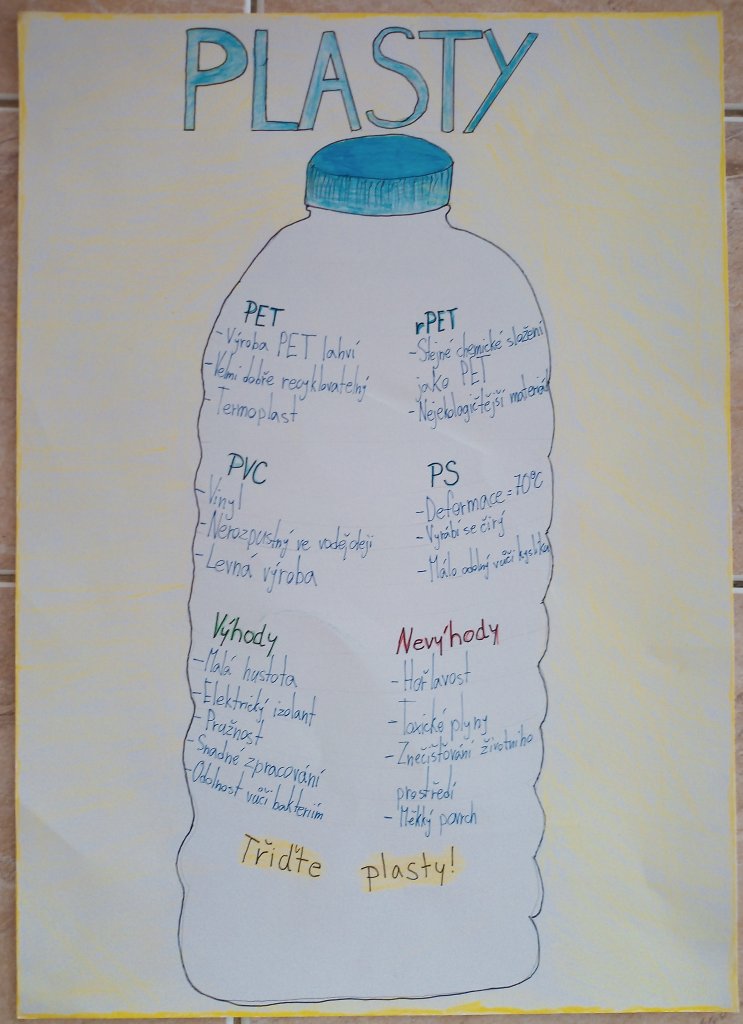 PLASTY
PET
-Výroba PET lahví
-Velmi dobře recyklovatelný
-Termoplast
rPET
-Stejné chemické složení
jako PET
-Nejekologičtější materiál
PVC
-Vinyl
-Nerozpustný ve vodě, oleji
-Levná výroba
PS
-Deformace = 70°C
-Vyrábí se čirý
-Málo odolný vůči kyslíku
Výhody
-Malá hustota
-Elektrický izolant
-Pružnost
-Snadné zpracování
-Odolnost vůči bakteriím
Nevýhody
-Hořlavost
-Toxické plyny
-Znečišťování životního
prostředí
-Měkký povrch
Třiďte plasty!